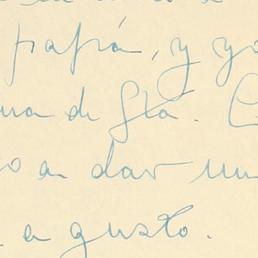 papá, y yo
na de Sta. C
o a dar un
a gusto.